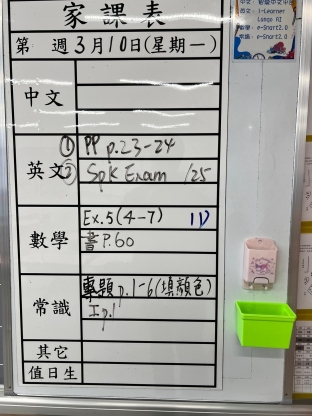 家課表
第 週3月10日(星期一)
中文
英文
① PP p.23-24
② Spk Exam /25
數學
Ex.5(4-7)
書 P.60
常識
專題 p.1-6(填顏色)
工p.1
其它
值日生
i-Learner
e-Smart2.0
e-Smart2.0